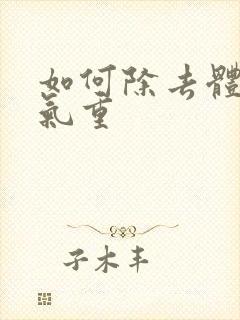 如何除去體
氣重
子木丰